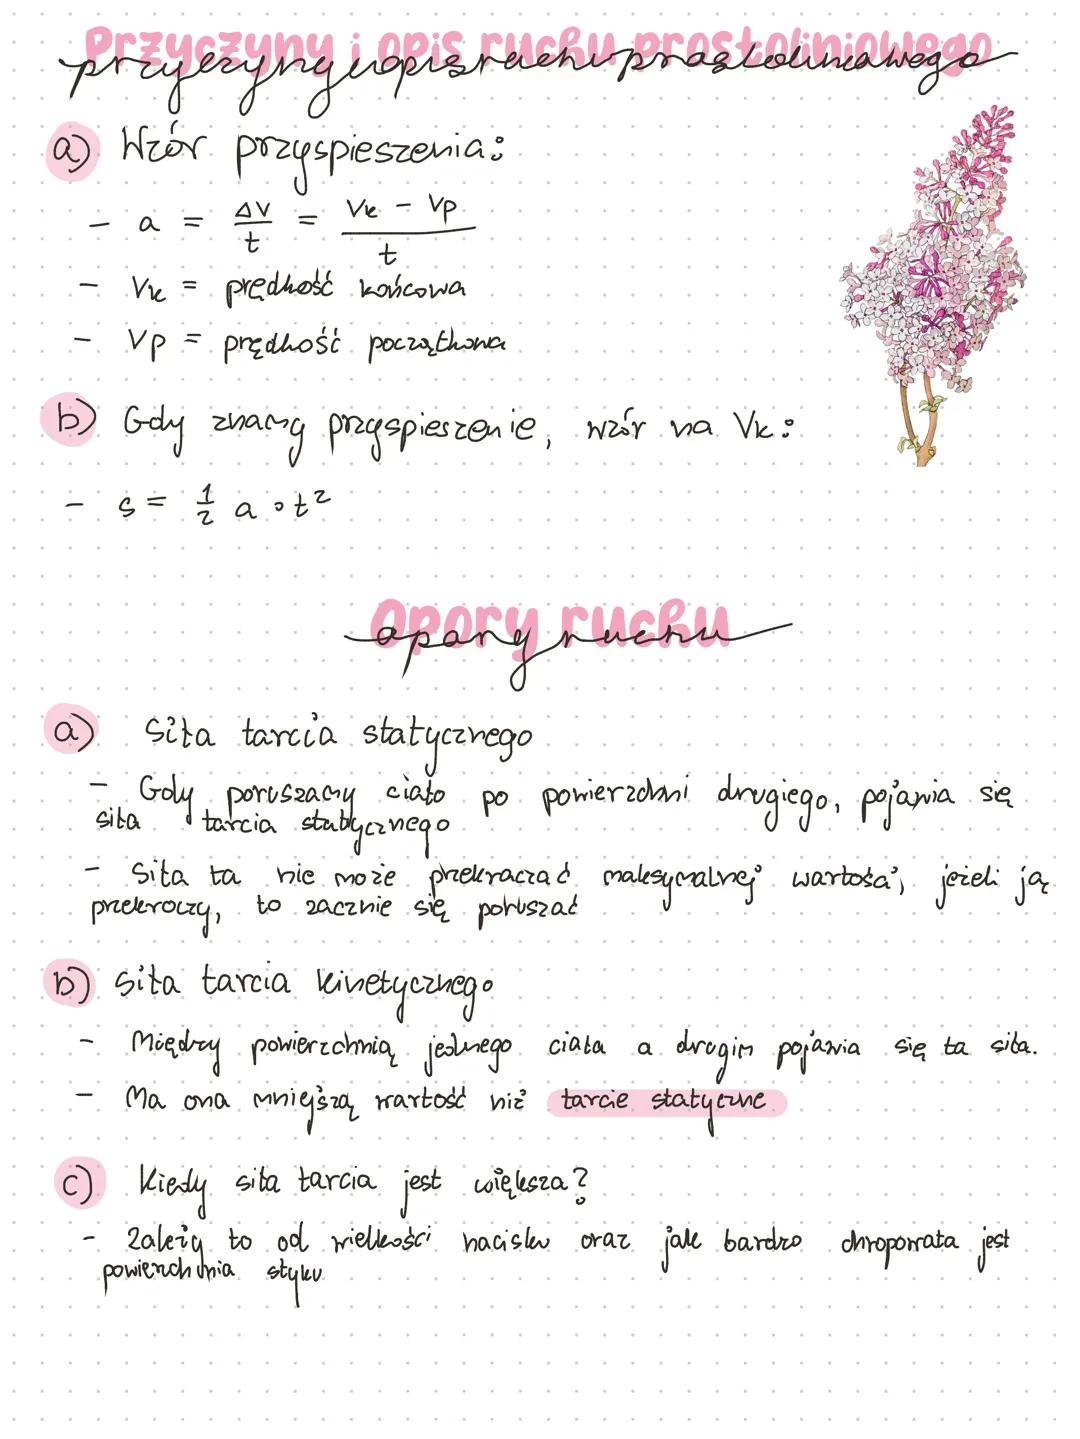 Przyczyny i opis ruchu prostoliniowego
przyczyny i opis ruchu prostoliniowego
a) Wzór przyspieszenia:
- a = ΔV/t = Vk - Vp/t
- Vk = prędkość końcowa
- Vp = prędkość początkowa
b) Gdy znamy przyspieszenie, wzór na Vk:
- s = 1/2 a · t²
Opory ruchu
opory ruchu
a) Siła tarcia statycznego
- Gdy poruszamy ciało po powierzchni drugiego, pojawia się
siła tarcia statycznego
- Siła ta nie może przekraczać maksymalnej wartości, jeżeli ją
przekroczy, to zacznie się poruszać
b) Siła tarcia kinetycznego
- Między powierzchnią jednego ciała a drugim pojawia się ta siła.
- Ma ona mniejszą wartość niż tarcie statyczne
c) Kiedy siła tarcia jest większa?
- Zależy to od wielkości nacisku oraz jak bardzo chropowata jest
powierzchnia styku